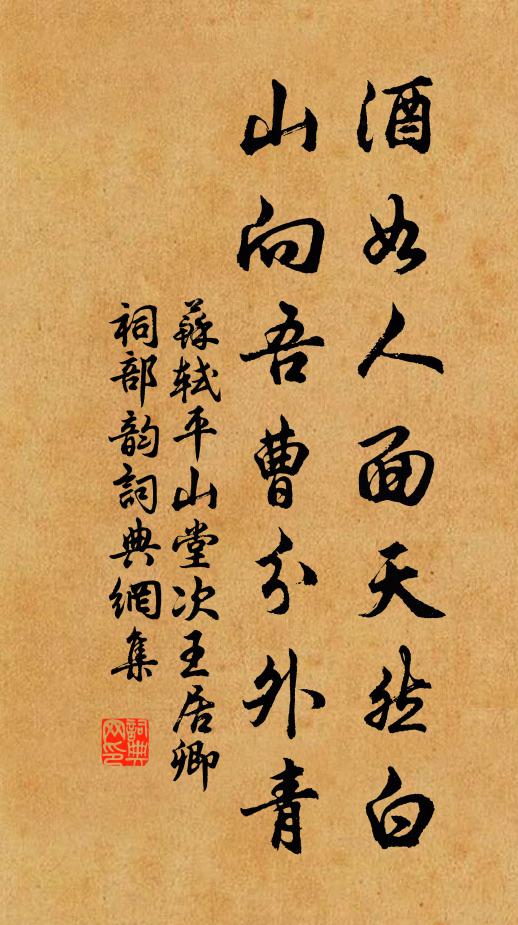 酒如人面天然白
山向吾曹分外青
蘇軾平山堂次王居卿
祠部韵詞典網集
詞典网印